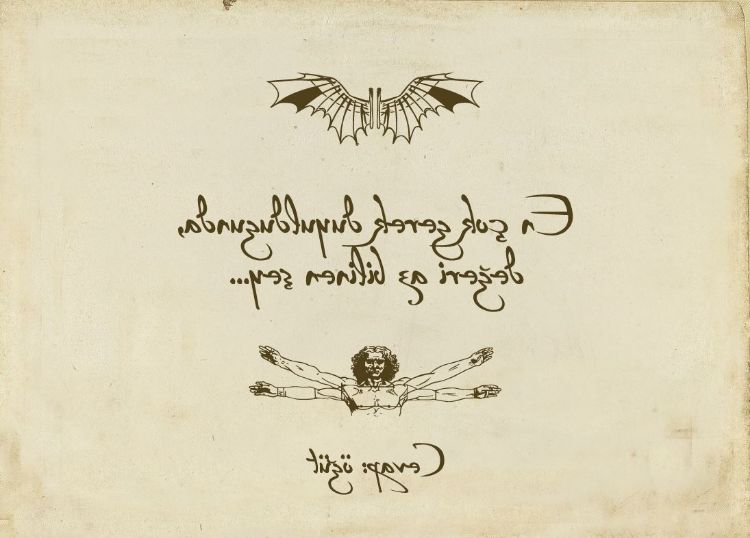 En çok gerek duyulduğunda,
değeri az bilinen şey...
Cevap: öğüt